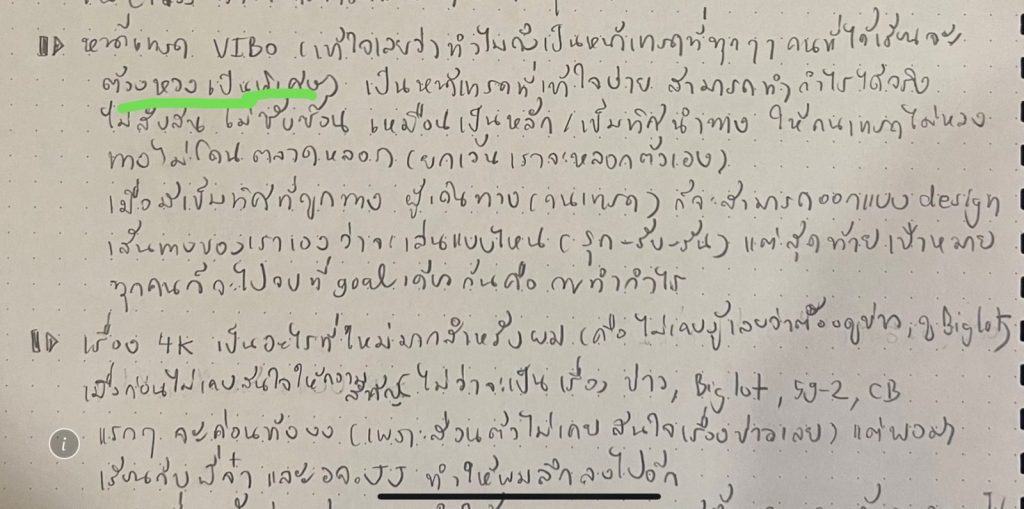 หน้าเทรด VIBO (เข้าใจเลยว่า ทำไมถึงเป็นหน้าเทรดที่ทุกๆ คนที่ได้เรียนจะ
ต้องหวงเป็นพิเศษ) เป็นหน้าเทรดที่เข้าใจง่าย สามารถทำกำไรได้จริง
ไม่สับสน ไม่ซับซ้อน เหมือนเป็นหลัก/เข็มทิศนำทาง ให้คนเทรดไม่หลง
ทางไม่โดนตลาดหลอก (ยกเว้นเราจะหลอกตัวเอง)
เมื่อมีเข็มทิศที่ถูกทาง ผู้เดินทาง (คนเทรด) ก็จะสามารถออกแบบ design
เส้นทางของเราเอง ว่าจะเล่นแบบไหน (รุก-รับ-รัน) แต่สุดท้ายเป้าหมาย
ทุกคนก็จะไปจบที่ goal เดียวกันคือ การทำกำไร
เรื่อง 4K เป็นอะไรที่ใหม่มากสำหรับผม (คือ ไม่เคยรู้เลยว่าต้องดูข่าว, ดู Biglot)
เมื่อก่อนไม่เคยสนใจให้ความสำคัญ ไม่ว่าจะเป็นเรื่อง ข่าว, Big lot, 59-2, CB
แรกๆ จะค่อนข้างงง (เพราะส่วนตัวไม่เคยสนใจเรื่องข่าวเลย) แต่พอมา
เรียนกับพี่จ๋า และอจ.JJ ทำให้ผมลึกลงไปอีก